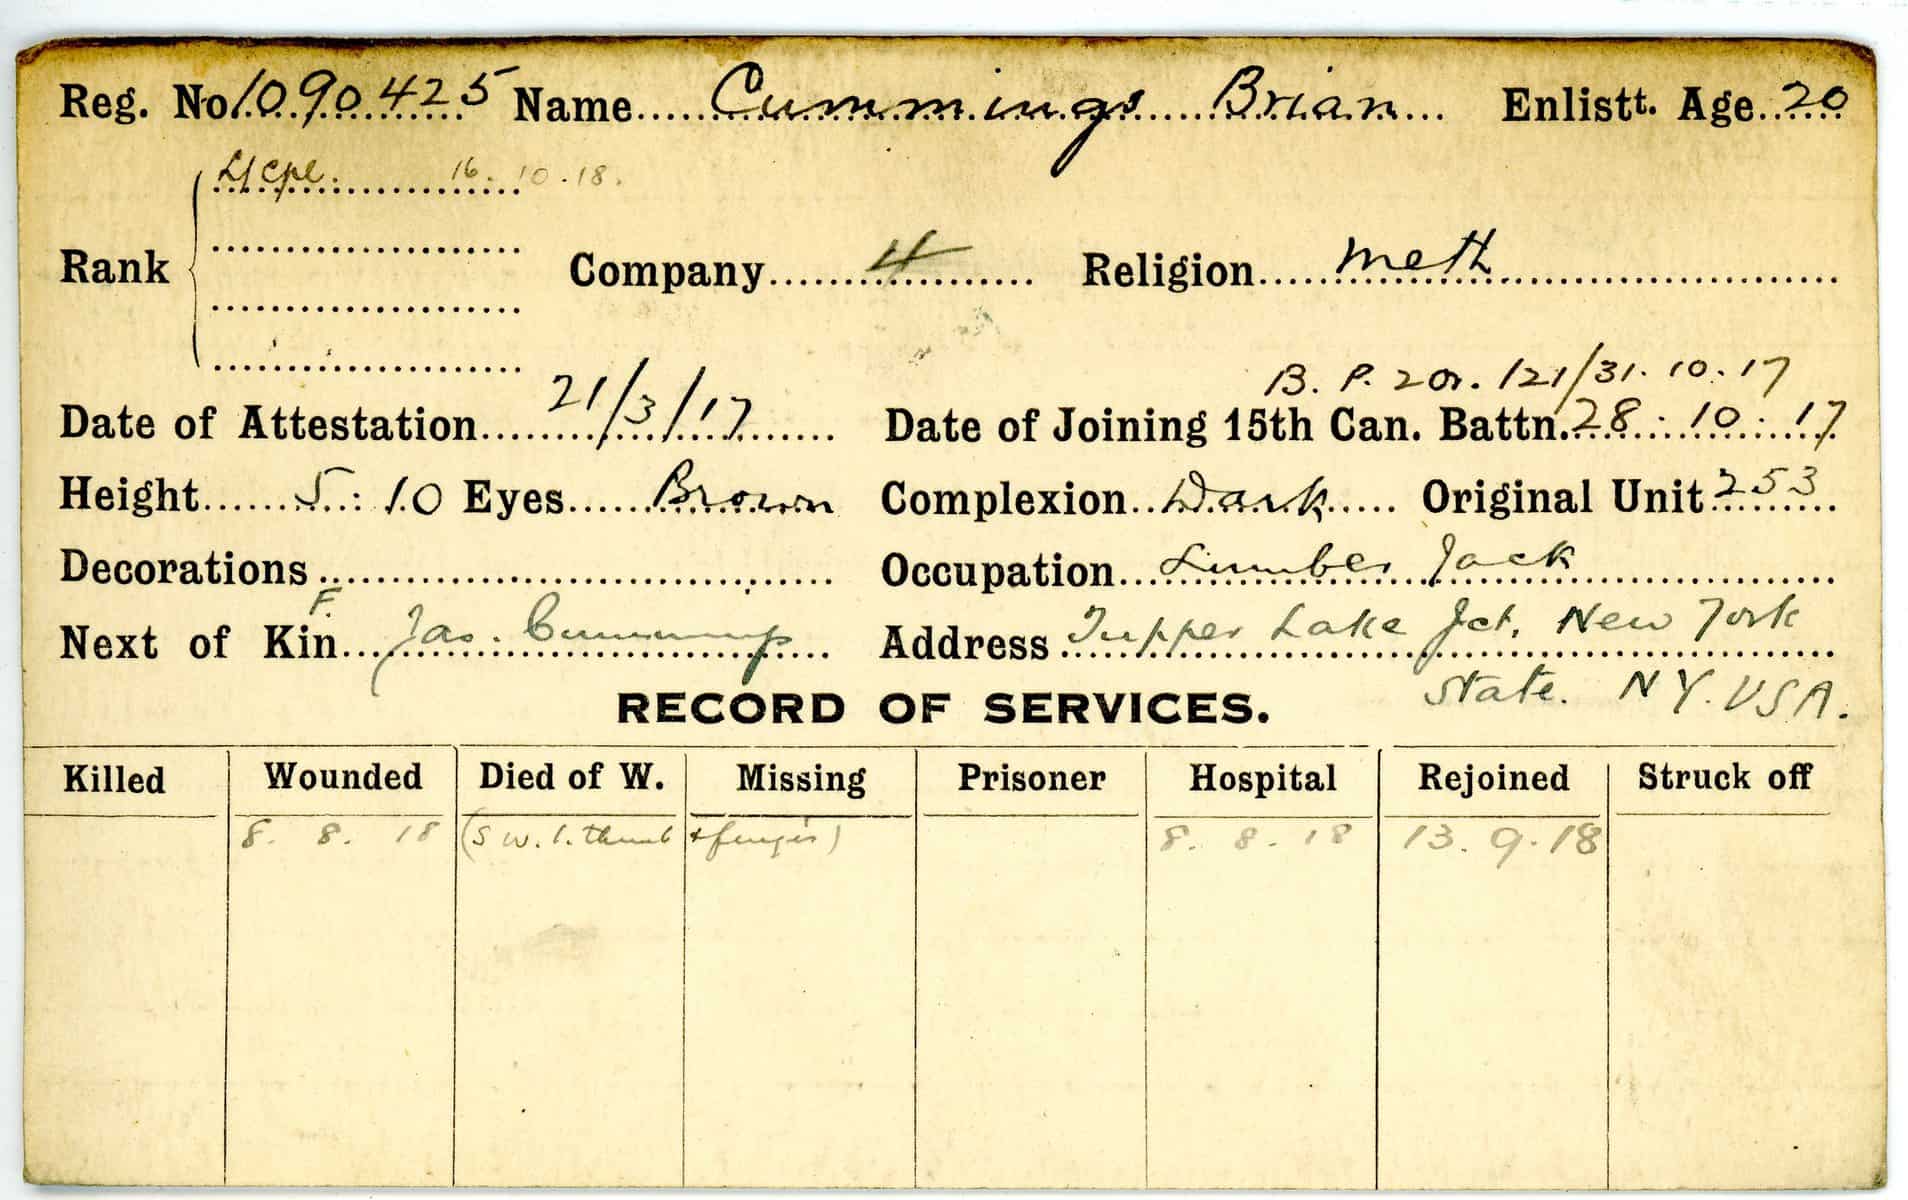 Reg. No 1090425 Name Cummings Brian Enlistt. Age 20
L/Cpl. 16.10.18.
Rank Company 4 Religion Meth
B. P. 2 Or. 121/31.10.17
Date of Attestation 21/3/17 Date of Joining 15th Can. Battn. 28.10.17
Height 5:10 Eyes Brown Complexion Dark Original Unit 253
Decorations Occupation Lumber Jack
F.
Next of Kin Jas. Cummings Address Tupper Lake Jct. New York
State. NY. USA.
RECORD OF SERVICES.
Killed Wounded Died of W. Missing Prisoner Hospital Rejoined Struck off
8. 8. 18 (S w. l. thumb + finger) 8. 8. 18 13. 9. 18